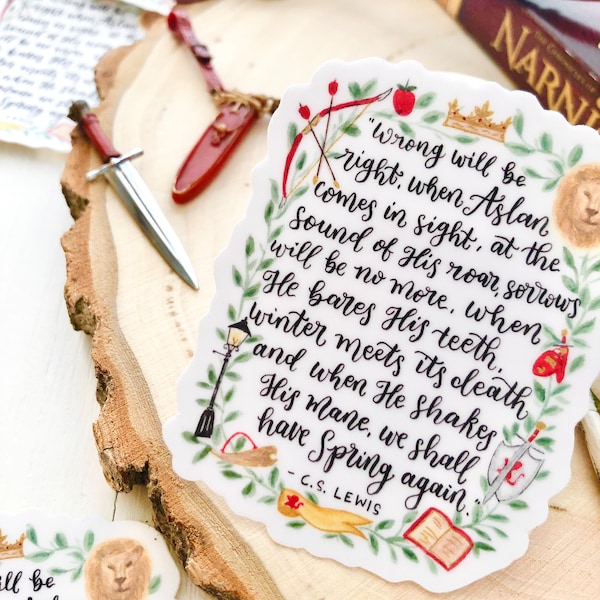 "Wrong will be
right, when Aslan
comes in sight, at the
sound of His roar, sorrows
will be no more, when
He bares His teeth,
winter meets its death
and when He shakes
His mane, we shall
have Spring again."
- C.S. LEWIS
THE CHRONICLES OF
NARNI
ill be